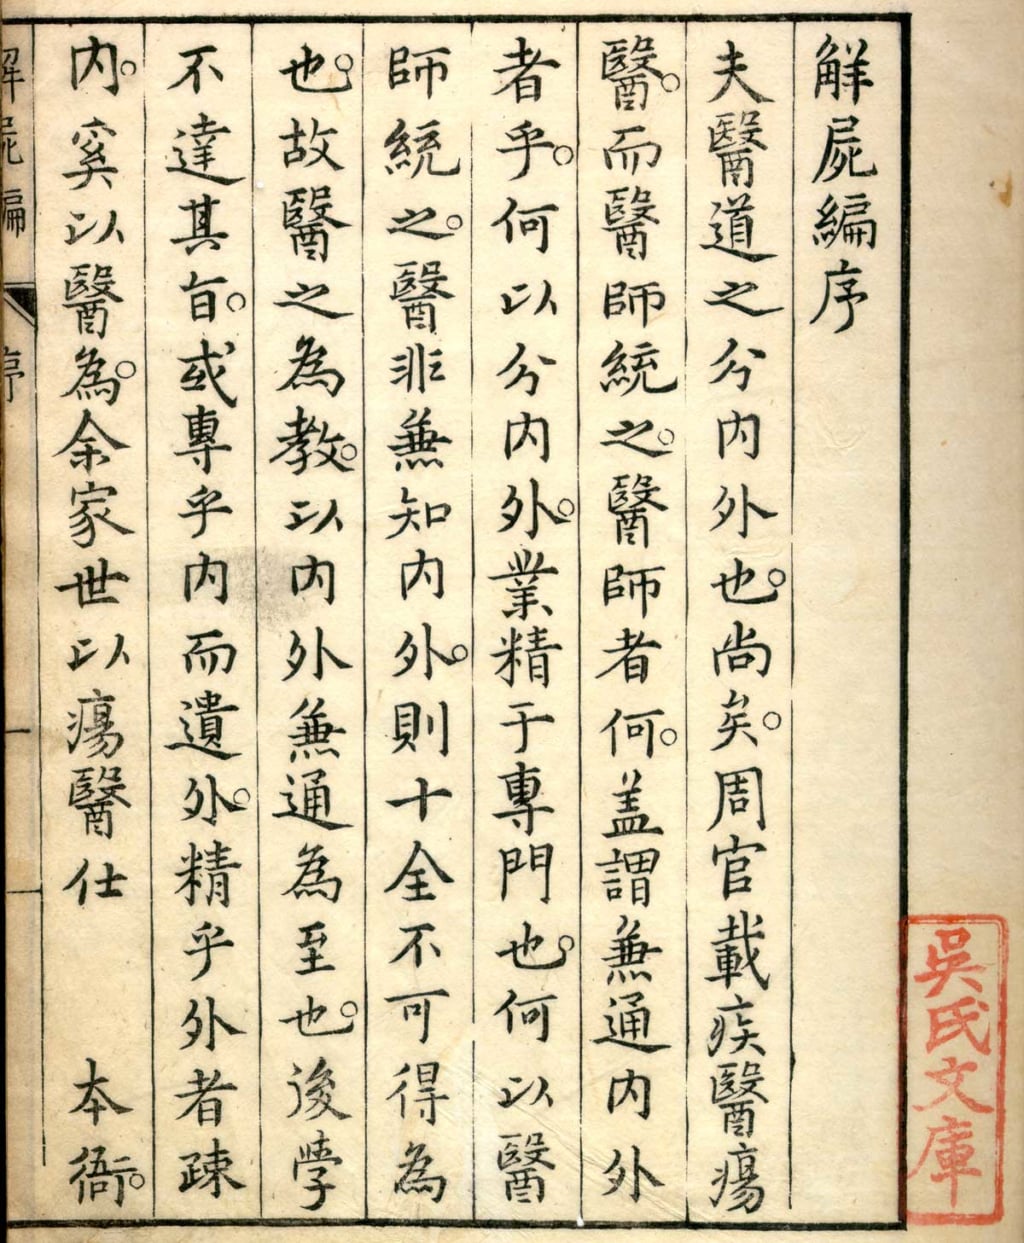 解屍編序
夫醫道之分内外也。尚矣。周官載疾醫瘍
醫。而醫師統之。醫師者何。盖謂兼通内外
者乎。何以分内外。業精于專門也。何以醫
師統之。醫非兼知内外。則十全不可得為
也。故醫之為教。以内外兼通為至也。後學
不達其旨。或專乎内而遺外。精乎外者疎
内。奚以醫為。余家世以瘍醫仕　本衙。
解屍編　序　一
吳氏文庫